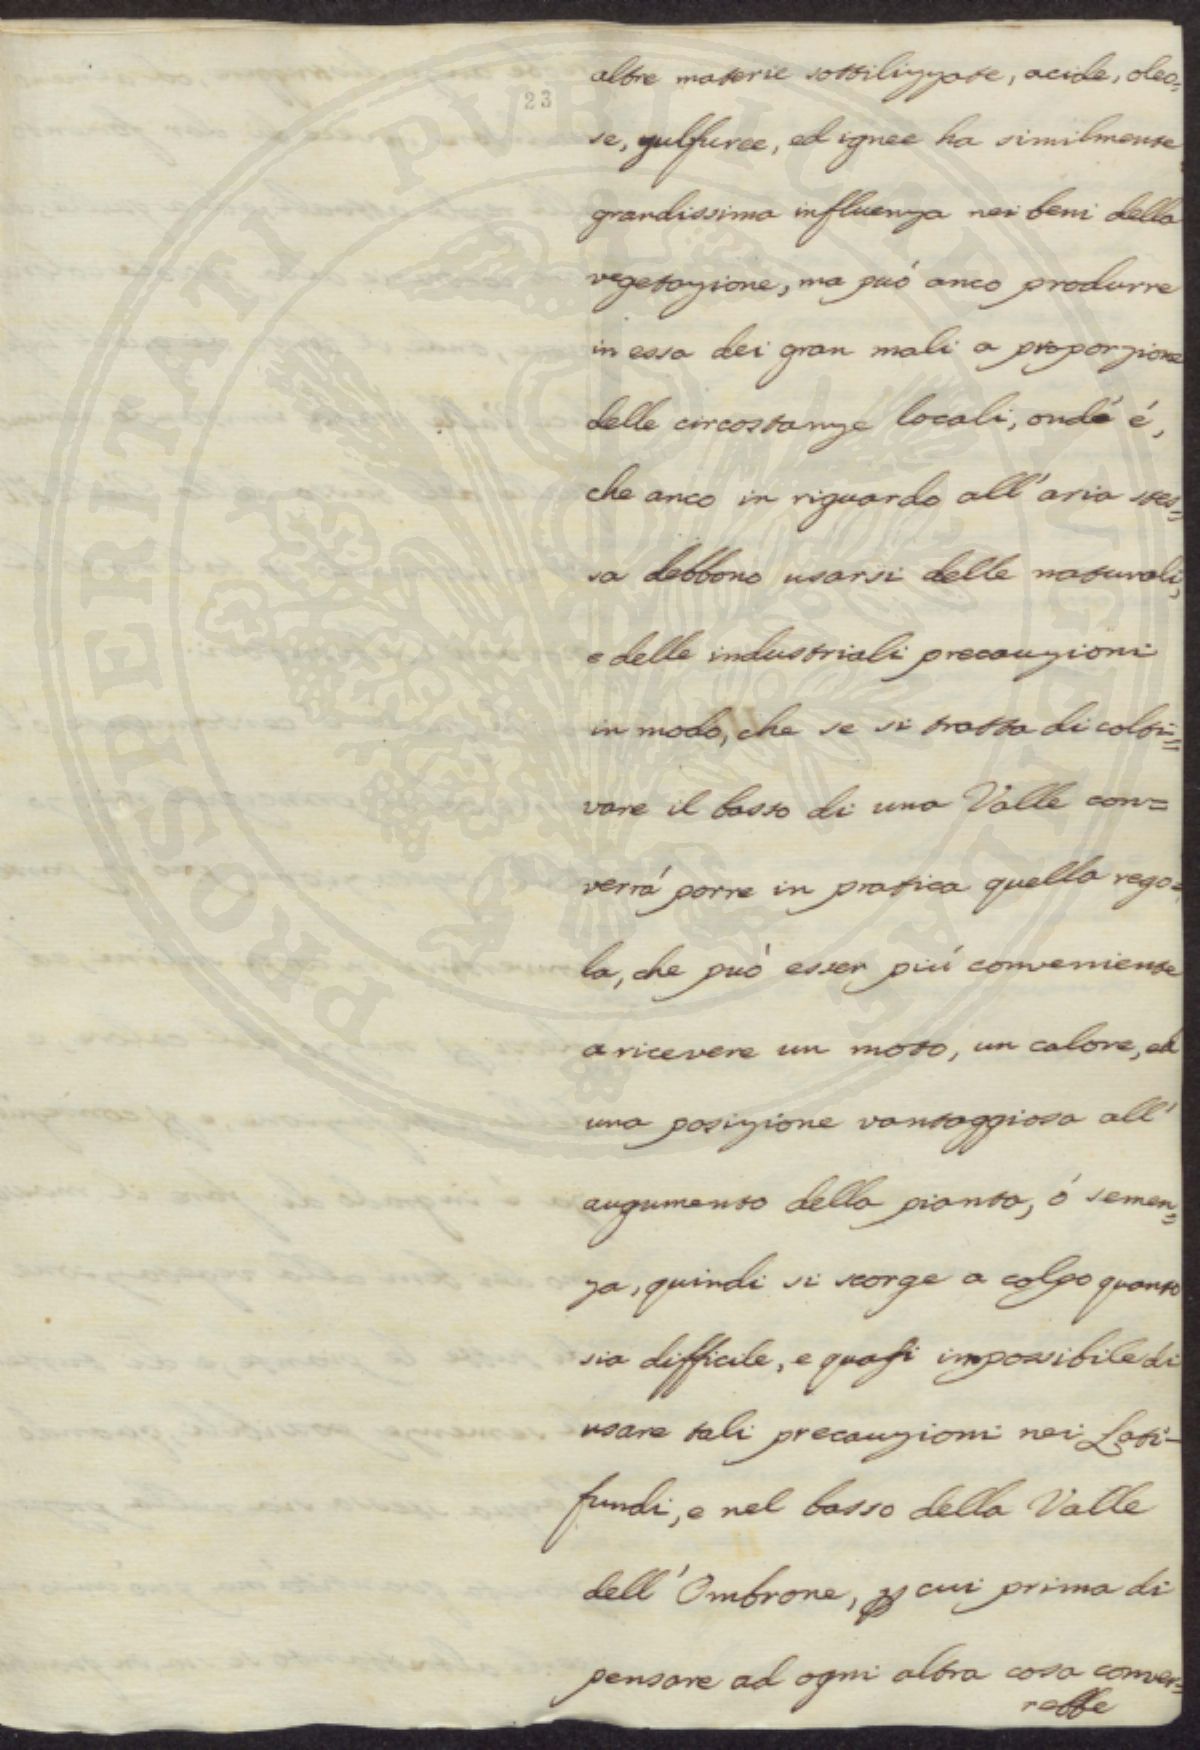 23
altre materie sottilizzate, acide, oleo=
se, sulfuree, ed ignee ha similmente
grandissima influenza nei beni della
vegetazione, ma può anco produrre
in essa dei gran mali a proporzione
delle circostanze locali, ond'è é,
che anco in riguardo all'aria stes=
sa debbono usarsi delle naturali,
e delle industriali precauzioni
in modo, che se si tratta di colti=
vare il basso di una Valle con=
verrá porre in pratica quella rego=
la, che può esser piú conveniente
a ricevere un moto, un calore, ed
una posizione vantaggiosa all'
augumento della pianta, ó semen=
za, quindi si scorge a colpo quanto
sia difficile, e quasi impossibile di
usare tali precauzioni nei Lati-
fundi, e nel basso della Valle
dell'Ombrone, cui prima di
pensare ad ogni altra cosa conver=
rebbe
PROSPERITATI PUBLICAE AUGENDAE